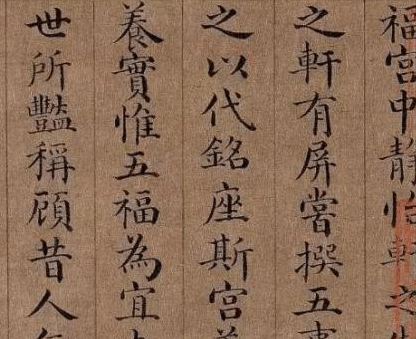 福宮中靜怡軒之
之軒有屏嘗撰五事
之以代銘座斯宮
養實惟五福為宜
世所豔稱顧昔人